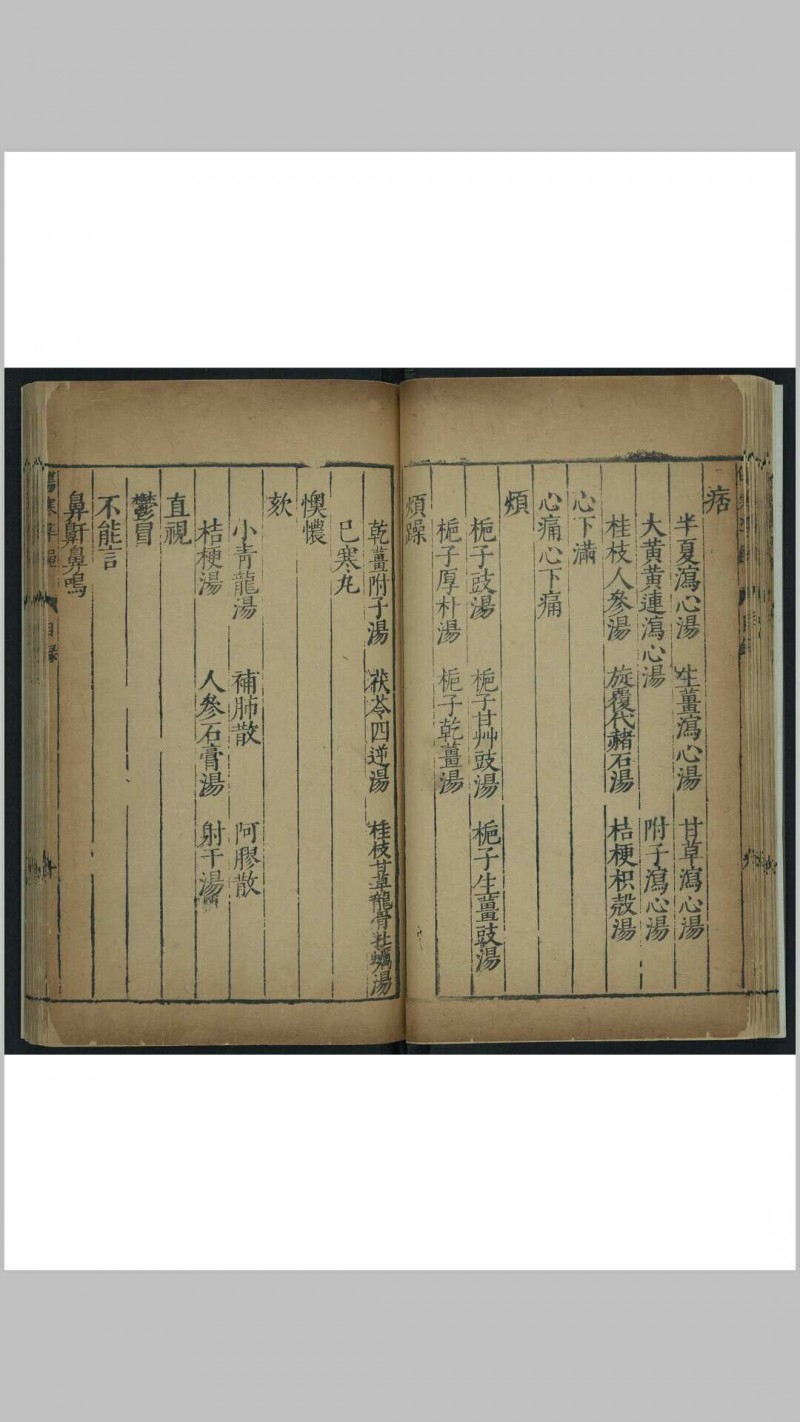 痞
半夏瀉心湯 生薑瀉心湯 甘草瀉心湯
大黃黃連瀉心湯 附子瀉心湯
桂枝人參湯 旋覆代赭石湯 桔梗枳殼湯
心下滿
心痛心下痛
煩
梔子豉湯 梔子甘艸豉湯 梔子生薑豉湯
梔子厚朴湯 梔子乾薑湯
煩躁
乾薑附子湯 茯苓四逆湯 桂枝甘草龍骨牡蠣湯
巳寒丸
懊憹
欬
小青龍湯 補肺散 阿膠散
桔梗湯 人參石膏湯 射干湯
直視
鬱冒
不能言
鼻鼾鼻鳴
目錄